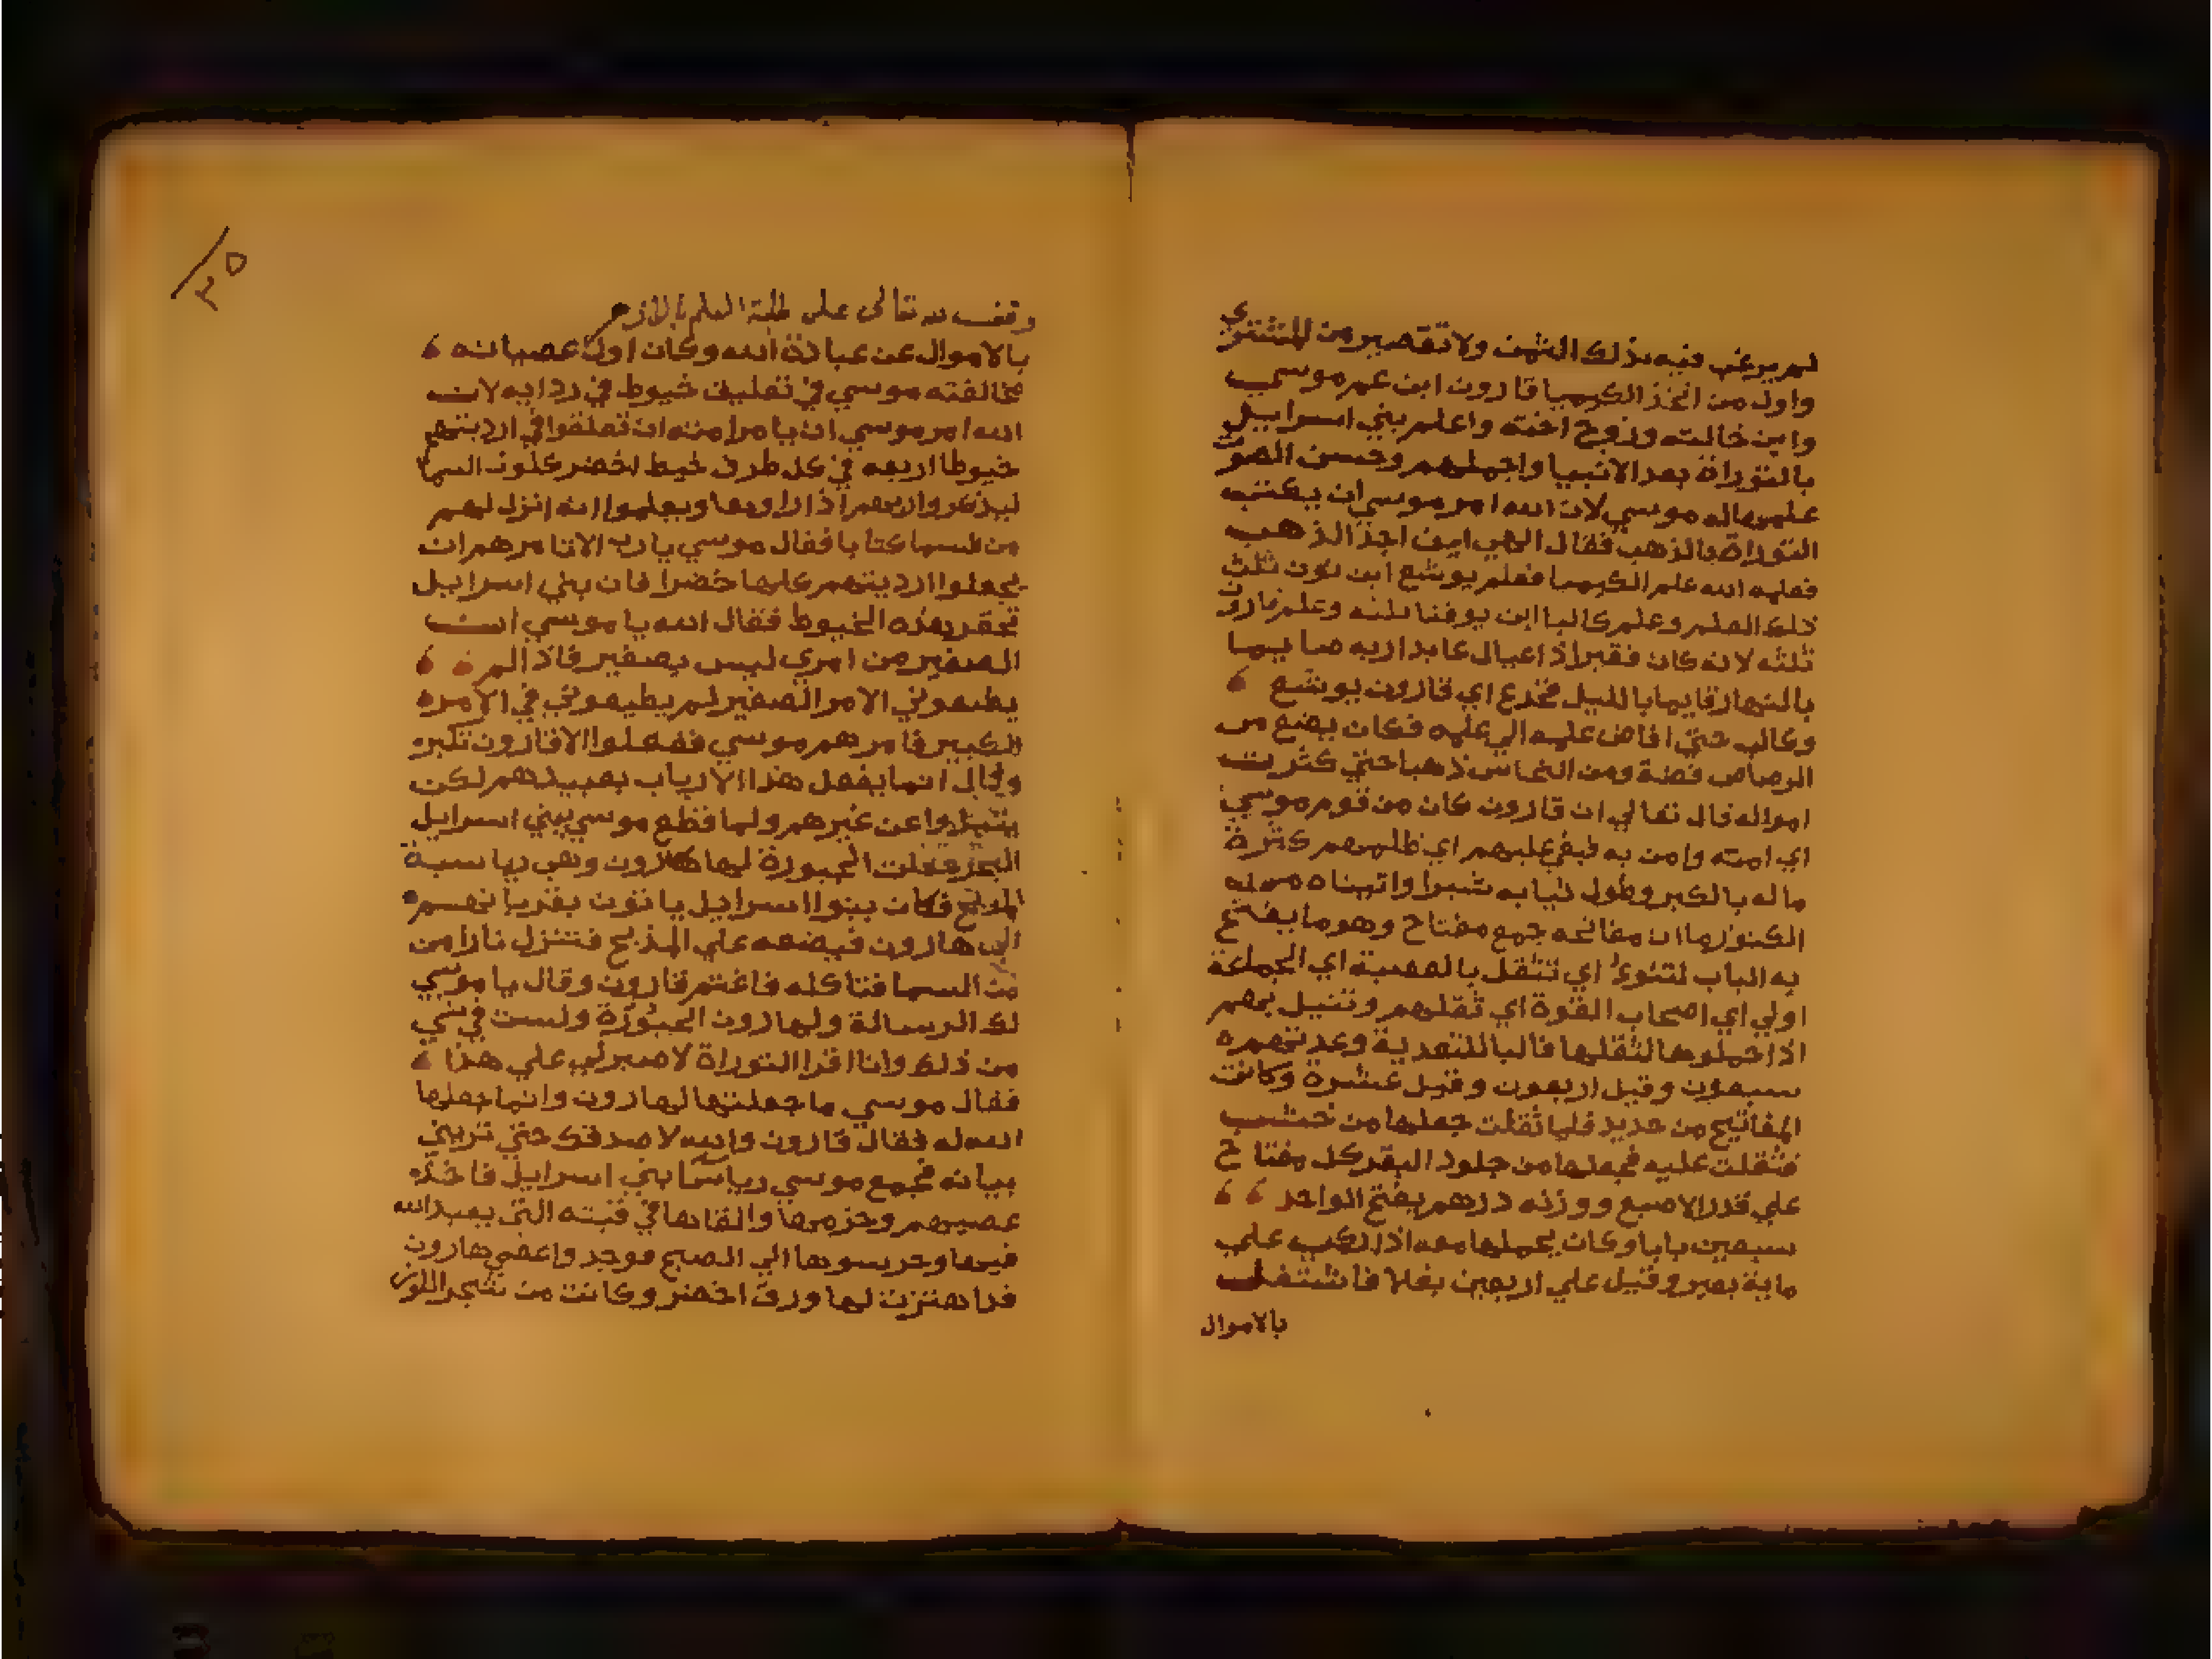 لم يرغب فيه بذلك الثمن ولا تقصير من المشتري
واول من اتخذ الكيميا قارون ابن عم موسي
وابن خالته وزوج اخته واعلم بني اسراييل
بالتوراة بعد الانبيا واجملهم وحسن الصوت
علمها له موسي لان الله امر موسي ان يكتب
التوراة بالذهب فقال الهي اين اجد الذهب
فعلمه الله علم الكيميا فعلم يوشع ابن نون ثلث
ذلك العلم وعلم كالبا ابن يوفنا ثلثه وعلم قارون
ثلثه لانه كان فقيرا ذا عيال عابدا ربه صايما
بالنهار قايما بالليل فخدع اي قارون يوشع
وكالب حتي افاض عليه الي علمه فكان يصنع من
الرصاص فضة ومن النحاس ذهبا حتي كثرت
امواله قال تعالي ان قارون كان من قوم موسي
اي امته وامن به فبغي عليهم اي ظلمهم كثرة
ماله بالكبر وطول ثيابه شبرا واتيناه من
الكنوز ما ان مفاتحه جمع مفتاح وهو ما يفتح
به الباب لتنوء اي تثقل بالعصبة اي الجماعة
اولي اي اصحاب القوة اي تثقلهم وتميل بهم
اذا حملوها لثقلها فالبا للتعدية وعدتهم
سبعون وقيل اربعون وقيل عشرة وكانت
المفاتيح من حديد فلما ثقلت جعلها من خشب
فثقلت عليه فجعلها من جلود البقر كل مفتاح
علي قدر الاصبع ووزنه درهم يفتح الواحد
سبعين بابا وكان يحملها معه اذا ركب علي
ماية بعير وقيل علي اربعين بغلا فاشتغل
بالاموال
٢٥
وقف لله تعالى على طلبة العلم بالازهر
بالاموال عن عبادة الله وكان اول عصيانه
مخالفته موسي في تعليق خيوط في ردايه لان
الله امر موسي ان يامر امته ان تعلقوا في ارديتهم
خيوطا اربعه في كل طرف خيط اخضر كلون السما
ليذكروا ربهم اذا راوها ويعلموا انه انزل لهم
من السما كتابا فقال موسي يا رب الا تامرهم ان
يجعلوا ارديتهم كلها خضرا فان بني اسراييل
تحقر هذه الخيوط فقال الله يا موسي ان
الصغير من امري ليس بصغير فاذا لم
يطيعوني الامر الصغير لم يطيعوني في الامر
الكبير فامرهم موسي ففعلوا الا قارون تكبر
وقال انما يفعل هذا الارباب بعبيدهم لكن
يتميزوا عن غيرهم ولما قطع موسي ببني اسراييل
البحر جعلت الحبورة لها هارون وهي رياسة
المذبح فكان بنوا اسراييل ياتون بقربانهم
الي هارون فيضعه علي المذبح فتنزل نارا من
من السما فتاكله فاغتم قارون وقال يا موسي
لك الرسالة ولهارون الحبورة ولست في شي
من ذلك وانا اقرا التوراة لا صبر لي علي هذا
فقال موسي ما جعلتها لهارون وانما جعلها
الله له فقال قارون والله لا صدقك حتي تريني
بيانه فجمع موسي رياسا بني اسراييل فاخذ
عصيهم وحزمها والقاها في قبته التي يعبد الله
فيها وحرسوها الي الصبح فوجدوا عصي هارون
قد اهتزت لها ورق اخضر وكانت من شجر اللوز